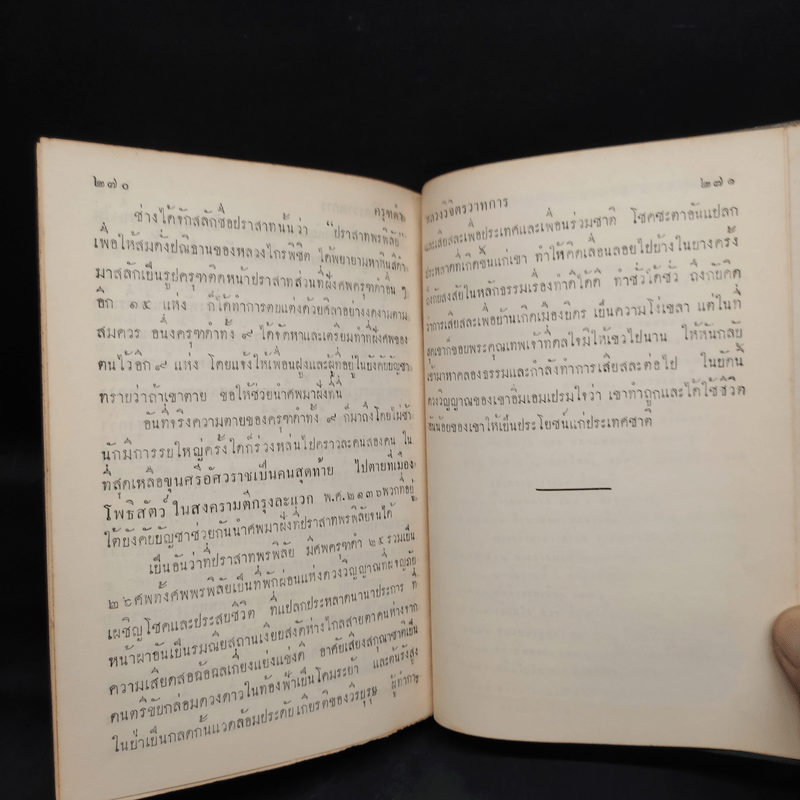 ๒๗๐
ครุฑดำ
ช่างได้จักสลักชื่อปราสาทนั้นว่า “ปราสาทพรพิลัย”
เพื่อให้สมดั่งปณิธานของหลวงไกรพิชิต ได้พยายามหาหินสีดำ
มาสลักเป็นรูปครุฑติดหน้าปราสาทส่วนที่ฝังศพครุฑดำอื่น ๆ
อีก ๑๕ แห่ง ก็ได้ทำการตบแต่งด้วยศิลาอย่างงดงามตาม
สมควร อนึ่งครุฑดำทั้ง ๙ ได้จัดหาและเตรียมทำที่ฝังศพของ
ตนไว้อีก ๙ แห่ง โดยแจ้งให้เพื่อนฝูงและผู้ที่อยู่ในบังคับบัญชา
ทราบว่าถ้าเขาตาย ขอให้ช่วยนำศพมาฝังที่นี่
อันที่จริงความตายของครุฑดำทั้ง ๙ ก็มาถึงโดยไม่ช้า
นักมีการรบใหญ่ครั้งใดก็ร่วงหล่นไปคราวละคนสองคน ใน
ที่สุดเหลือขุนศรีอัศวราชเป็นคนสุดท้าย ไปตายที่เมือง
โพธิสัตว์ ในสงครามตีกรุงละแวก พ.ศ.๒๑๓๖พวกที่อยู่
ใต้บังคับบัญชาช่วยกันนำศพมาฝังที่ปราสาทพรพิลัยจนได้
เป็นอันว่าที่ปราสาทพรพิลัย มีศพครุฑดำ ๒๕ รวมเป็น
๒๖ศพทั้งศพพรพิลัยเป็นที่พักผ่อนแห่งดวงวิญญาณที่ผจญภัย
เผชิญโชคและประสบชีวิต ที่แปลกประหลาดนานาประการ ที่
หน้าผาอันเป็นรมณียสถานเงียบสงัดห่างไกลสายตาคนห่างจาก
ความเสียดสอฉ้อฉลเกี่ยงแย่งแข่งดี อาศัยเสียงสกุณชาติเป็น
ดนตรีขับกล่อมดวงดาวในท้องฟ้าเป็นโคมระย้า และต้นรังสูง
ในป่าเป็นกลดกั้นแวดล้อมประดับเกียรติของวีรบุรุษ ผู้ทำการ
หลวงวิจิตรวาทการ
๒๗๑
และเสียสละเพื่อประเทศและเพื่อนร่วมชาติ โชคชะตาอันแปลก
ประหลาดที่เกิดขึ้นแก่เขา ทำให้คิดเลื่อนลอยไปบ้างในบางครั้ง
ถึงกับสงสัยในหลักธรรมเรื่องทำดีได้ดี ทำชั่วได้ชั่ว ถึงกับคิด
ว่าการเสียสละเพื่อบ้านเกิดเมืองบิดร เป็นความโง่เขลา แต่ในที่
สุดเขาก็ขอบพระคุณเทพเจ้าที่ดลใจมิให้เขวไปนาน ให้หันกลับ
เข้ามาหาคลองธรรมและกำลังทำการเสียสละต่อไป ในบัดนี้
ดวงวิญญาณของเขาอิ่มเอมเปรมใจว่า เขาทำถูกและได้ใช้ชีวิต
อันน้อยของเขาให้เป็นประโยชน์แก่ประเทศชาติ